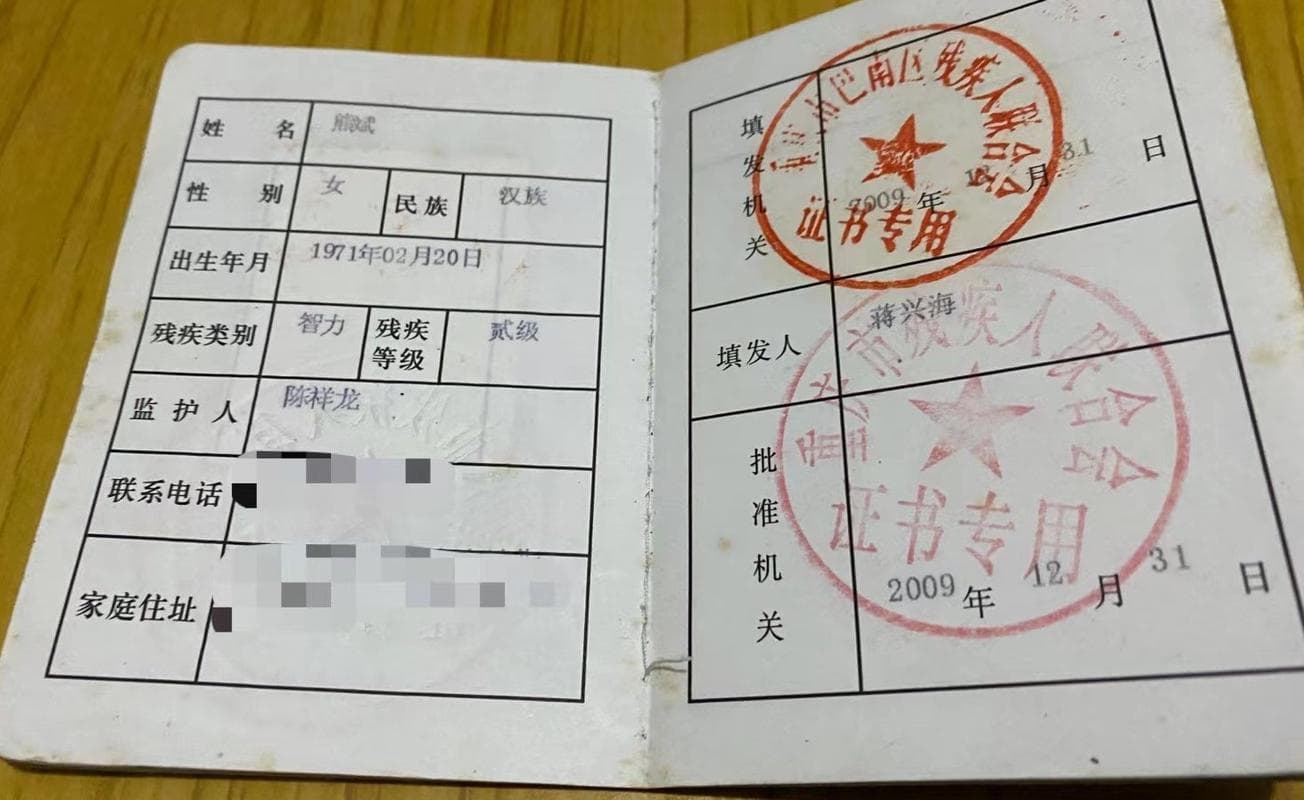 姓名 熊斌
性别 女 民族 汉族
出生年月 1971年02月20日
残疾类别 智力 残疾等级 贰级
监护人 陈祥龙
联系电话
家庭住址
填发机关
重庆市巴南区残疾人联合会
证书专用
2009年12月31日
填发人 蒋兴海
批准机关
重庆市残疾人联合会
证书专用
2009年12月31日